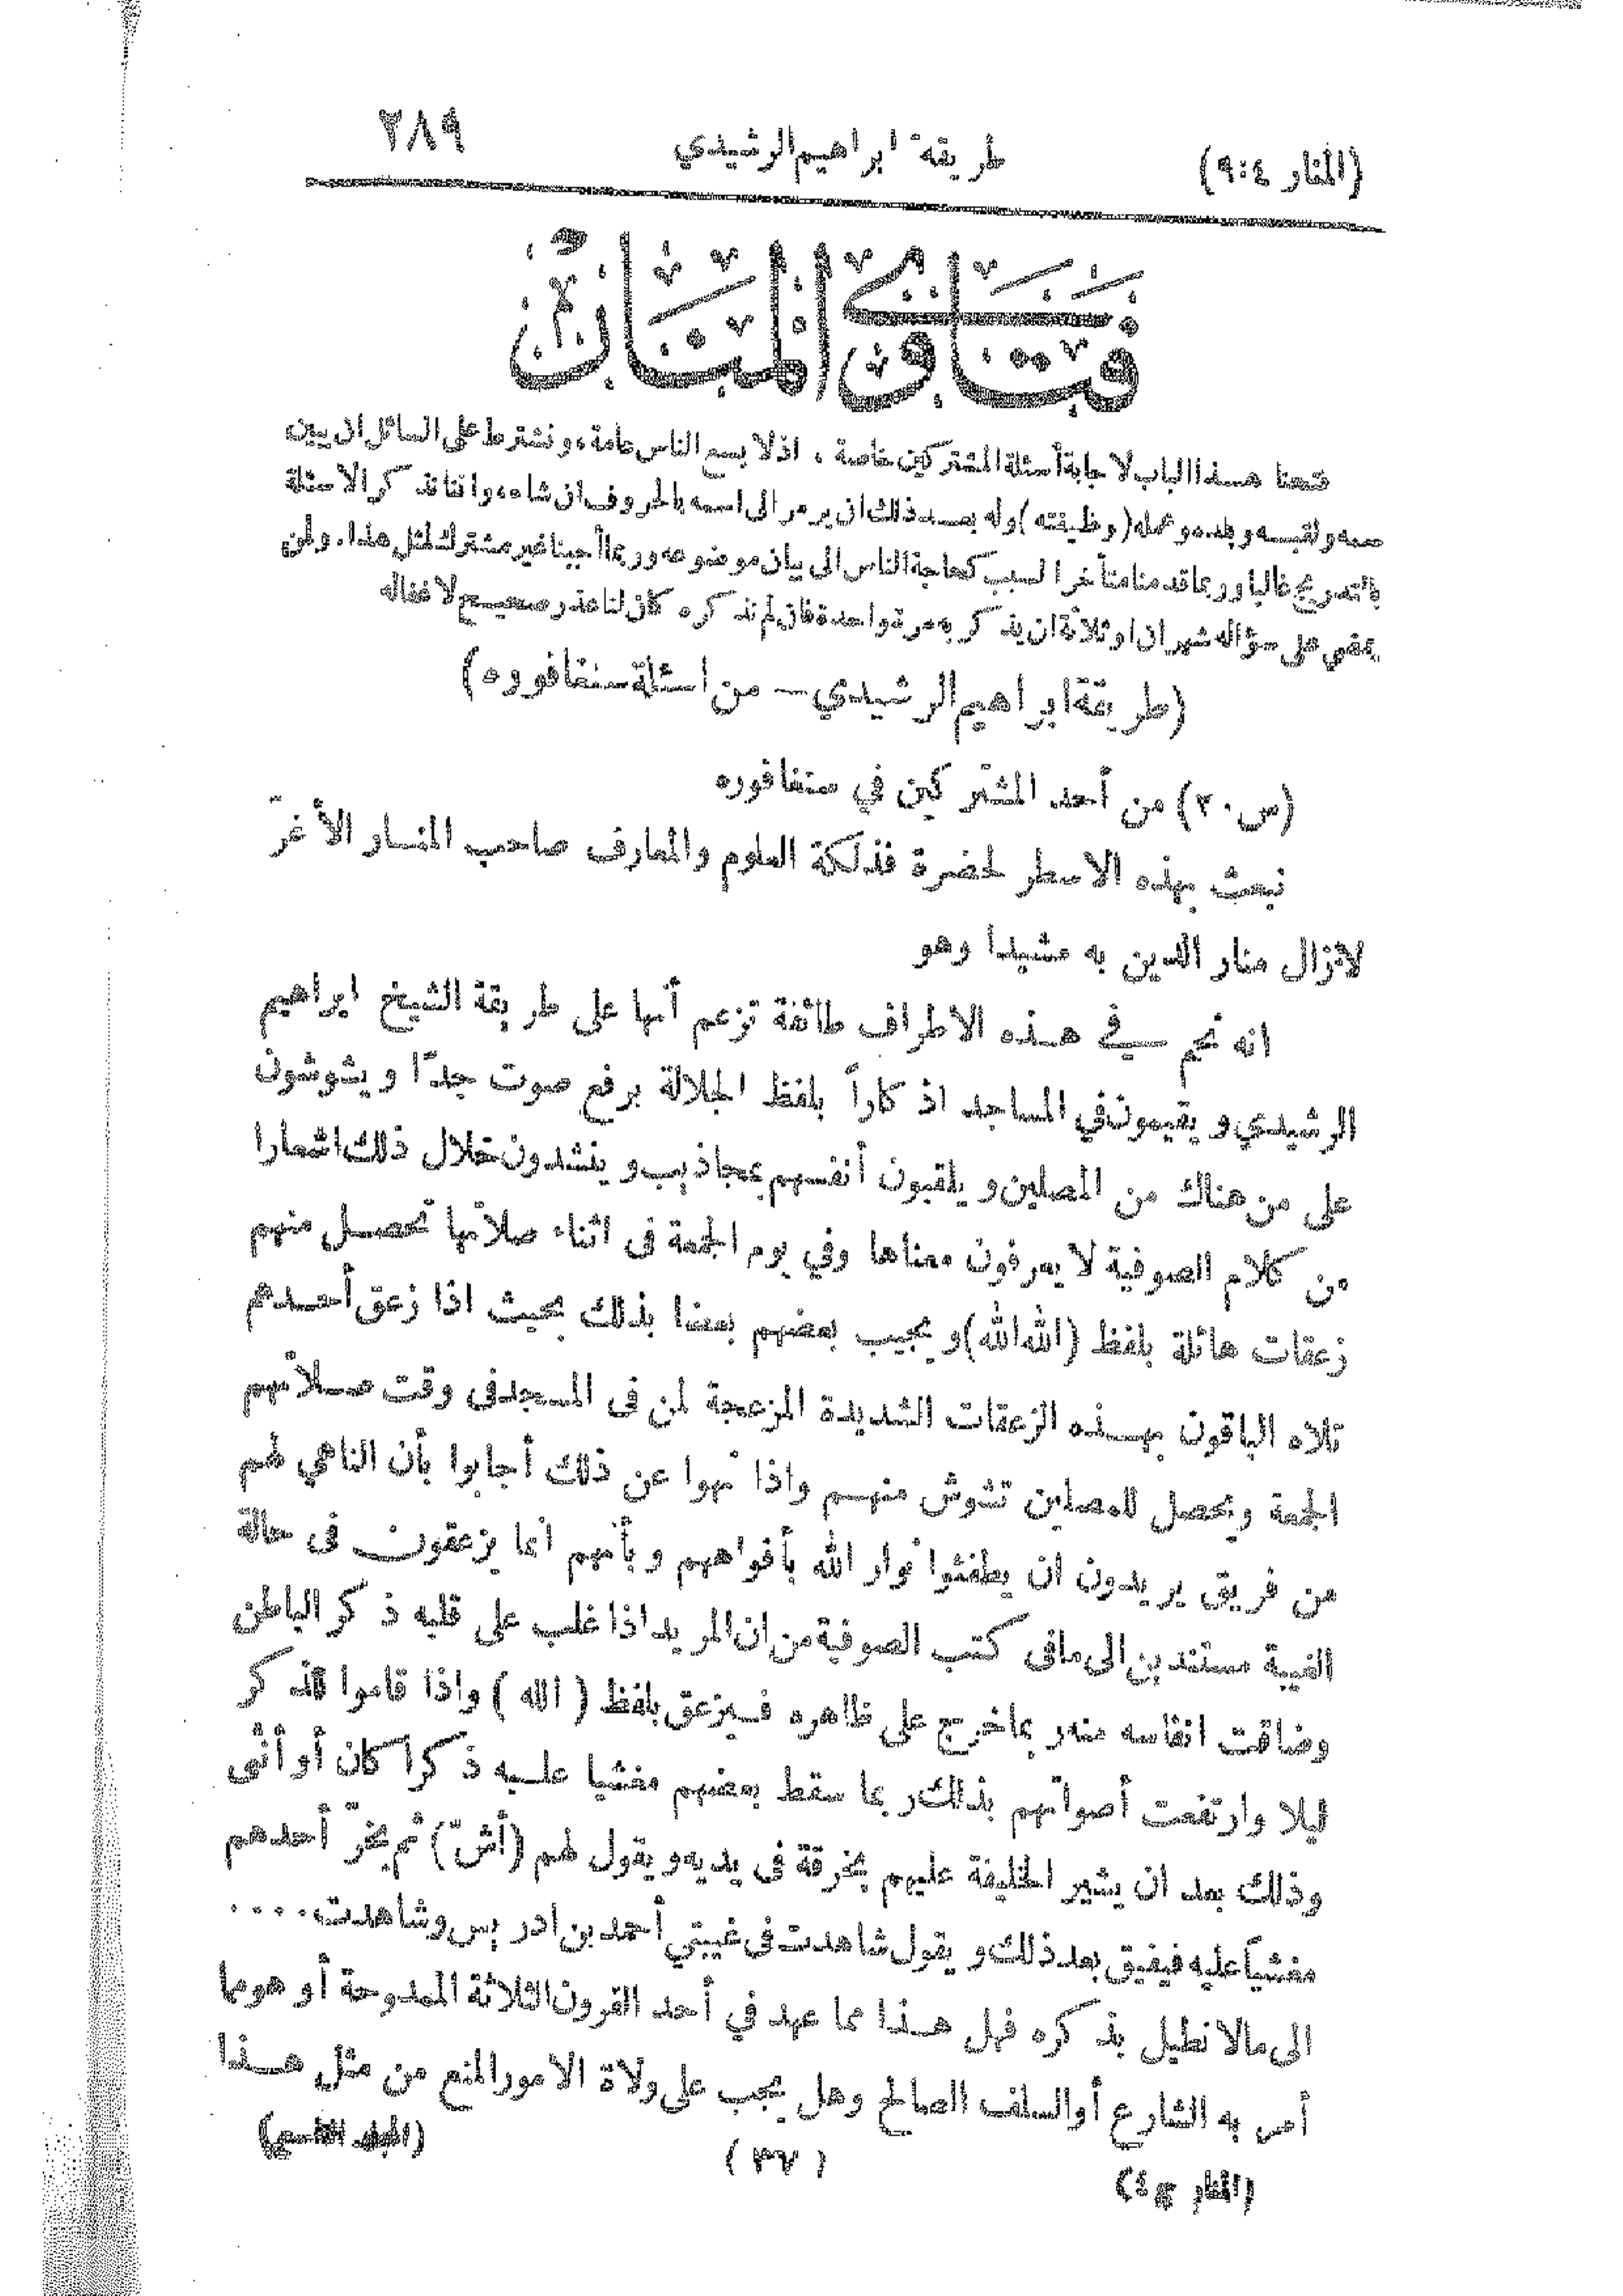 (المنار ٤:٩) طريقة ابراهيم الرشيدي ٢٨٩
فتاوى المنار
فتحنا هذا الباب لاجابة أسئلة المشتركين خاصة ، اذ لا يسع الناس عامة، ونشترط على السائل ان يبين
اسمه ولقبه وبلده وعمله (وظيفته) وله بعد ذلك ان يرمز الى اسمه بالحروف ان شاء، واننا نذكر الاسئلة
بالتدريج غالبا وربما قدمنا متأخرا لسبب كحاجة الناس الى بيان موضوعه وربما أجبنا غير مشترك لمثل هذا. ولمن
يمضي على سؤاله شهران او ثلاثة ان يذكر به مرة واحدة فان لم نذكره كان لنا عذر صحيح لاغفاله
(طريقة ابراهيم الرشيدي — من اسئلة سنقافوره)
(س ٢٠) من أحد المشتركين في سنغافوره
نبعث بهذه الاسطر لحضرة فذلكة العلوم والمعارف صاحب المنار الأغرّ
لا تزال منار الدين به مشيدا وهو
انه نجم في هذه الاطراف طائفة تزعم أنها على طريقة الشيخ ابراهيم
الرشيدي ويقيمون في المساجد اذكاراً بلفظ الجلالة برفع صوت جدّا ويشوشون
على من هناك من المصلين ويلقبون أنفسهم بمجاذيب وينشدون خلال ذلك اشعارا
من كلام الصوفية لا يعرفون معناها وفي يوم الجمعة فى اثناء صلاتها تحصل منهم
زعقات هائلة بلفظ (الله الله) ويجيب بعضهم بعضا بذلك بحيث اذا زعق أحدهم
تلاه الباقون بهذه الزعقات الشديدة المزعجة لمن فى المسجد فى وقت صلاتهم
الجمعة ويحصل للمصلين تشوش منهم واذا نهوا عن ذلك أجابوا بأن الناهي لهم
من فريق يريدون ان يطفئوا نوار الله بأفواههم وبأنهم انما يزعقون فى حالة
الغيبة مستندين الى ما فى كتب الصوفية من ان المريد اذا غلب على قلبه ذكر الباطن
وضاقت انفاسه منه ربما خرج على ظاهره فيزعق بلفظ (الله) واذا قاموا للذكر
ليلا وارتفعت أصواتهم بذلك ربما سقط بعضهم مغشيا عليه ذكراً كان أو أنثى
وذلك بعد ان يشير الخليفة عليهم بخرقة فى يديه ويقول لهم (أش) ثم يخرّ أحدهم
مغشياً عليه فيفيق بعد ذلك ويقول شاهدت فى غيبتي أحمد بن ادريس وشاهدت....
الى ما لا نطيل بذكره فهل هذا مما عهد في أحد القرون الثلاثة الممدوحة أو هو مما
أمر به الشارع أو السلف الصالح وهل يجب على ولاة الامور المنع من مثل هذا
(المنار ج ٤) (٣٧) (المجلد التاسع)